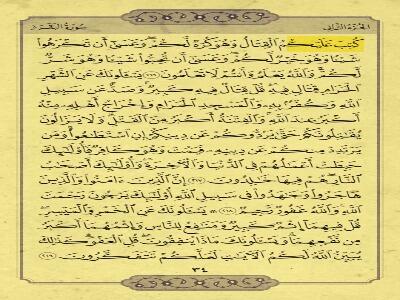 الجزء الثاني سورة البقرة
كُتِبَ عَلَيْكُمُ الْقِتَالُ وَهُوَ كُرْهٌ لَّكُمْ وَعَسَىٰ أَن تَكْرَهُوا
شَيْئًا وَهُوَ خَيْرٌ لَّكُمْ وَعَسَىٰ أَن تُحِبُّوا شَيْئًا وَهُوَ شَرٌّ
لَّكُمْ وَاللَّهُ يَعْلَمُ وَأَنتُمْ لَا تَعْلَمُونَ ﴿٢١٦﴾ يَسْـَٔلُونَكَ عَنِ الشَّهْرِ
الْحَرَامِ قِتَالٍ فِيهِ قُلْ قِتَالٌ فِيهِ كَبِيرٌ وَصَدٌّ عَن سَبِيلِ
اللَّهِ وَكُفْرٌ بِهِ وَالْمَسْجِدِ الْحَرَامِ وَإِخْرَاجُ أَهْلِهِ مِنْهُ
أَكْبَرُ عِندَ اللَّهِ وَالْفِتْنَةُ أَكْبَرُ مِنَ الْقَتْلِ وَلَا يَزَالُونَ
يُقَٰتِلُونَكُمْ حَتَّىٰ يَرُدُّوكُمْ عَن دِينِكُمْ إِنِ اسْتَطَٰعُوا وَمَن
يَرْتَدِدْ مِنكُمْ عَن دِينِهِ فَيَمُتْ وَهُوَ كَافِرٌ فَأُولَٰئِكَ
حَبِطَتْ أَعْمَٰلُهُمْ فِي الدُّنْيَا وَالْءَاخِرَةِ وَأُولَٰئِكَ أَصْحَٰبُ
النَّارِ هُمْ فِيهَا خَٰلِدُونَ ﴿٢١٧﴾ إِنَّ الَّذِينَ ءَامَنُوا وَالَّذِينَ
هَاجَرُوا وَجَٰهَدُوا فِي سَبِيلِ اللَّهِ أُولَٰئِكَ يَرْجُونَ رَحْمَتَ
اللَّهِ وَاللَّهُ غَفُورٌ رَّحِيمٌ ﴿٢١٨﴾ يَسْـَٔلُونَكَ عَنِ الْخَمْرِ وَالْمَيْسِرِ
قُلْ فِيهِمَا إِثْمٌ كَبِيرٌ وَمَنَٰفِعُ لِلنَّاسِ وَإِثْمُهُمَا أَكْبَرُ
مِن نَّفْعِهِمَا وَيَسْـَٔلُونَكَ مَاذَا يُنفِقُونَ قُلِ الْعَفْوَ كَذَٰلِكَ
يُبَيِّنُ اللَّهُ لَكُمُ الْءَايَٰتِ لَعَلَّكُمْ تَتَفَكَّرُونَ ﴿٢١٩﴾
٣٤